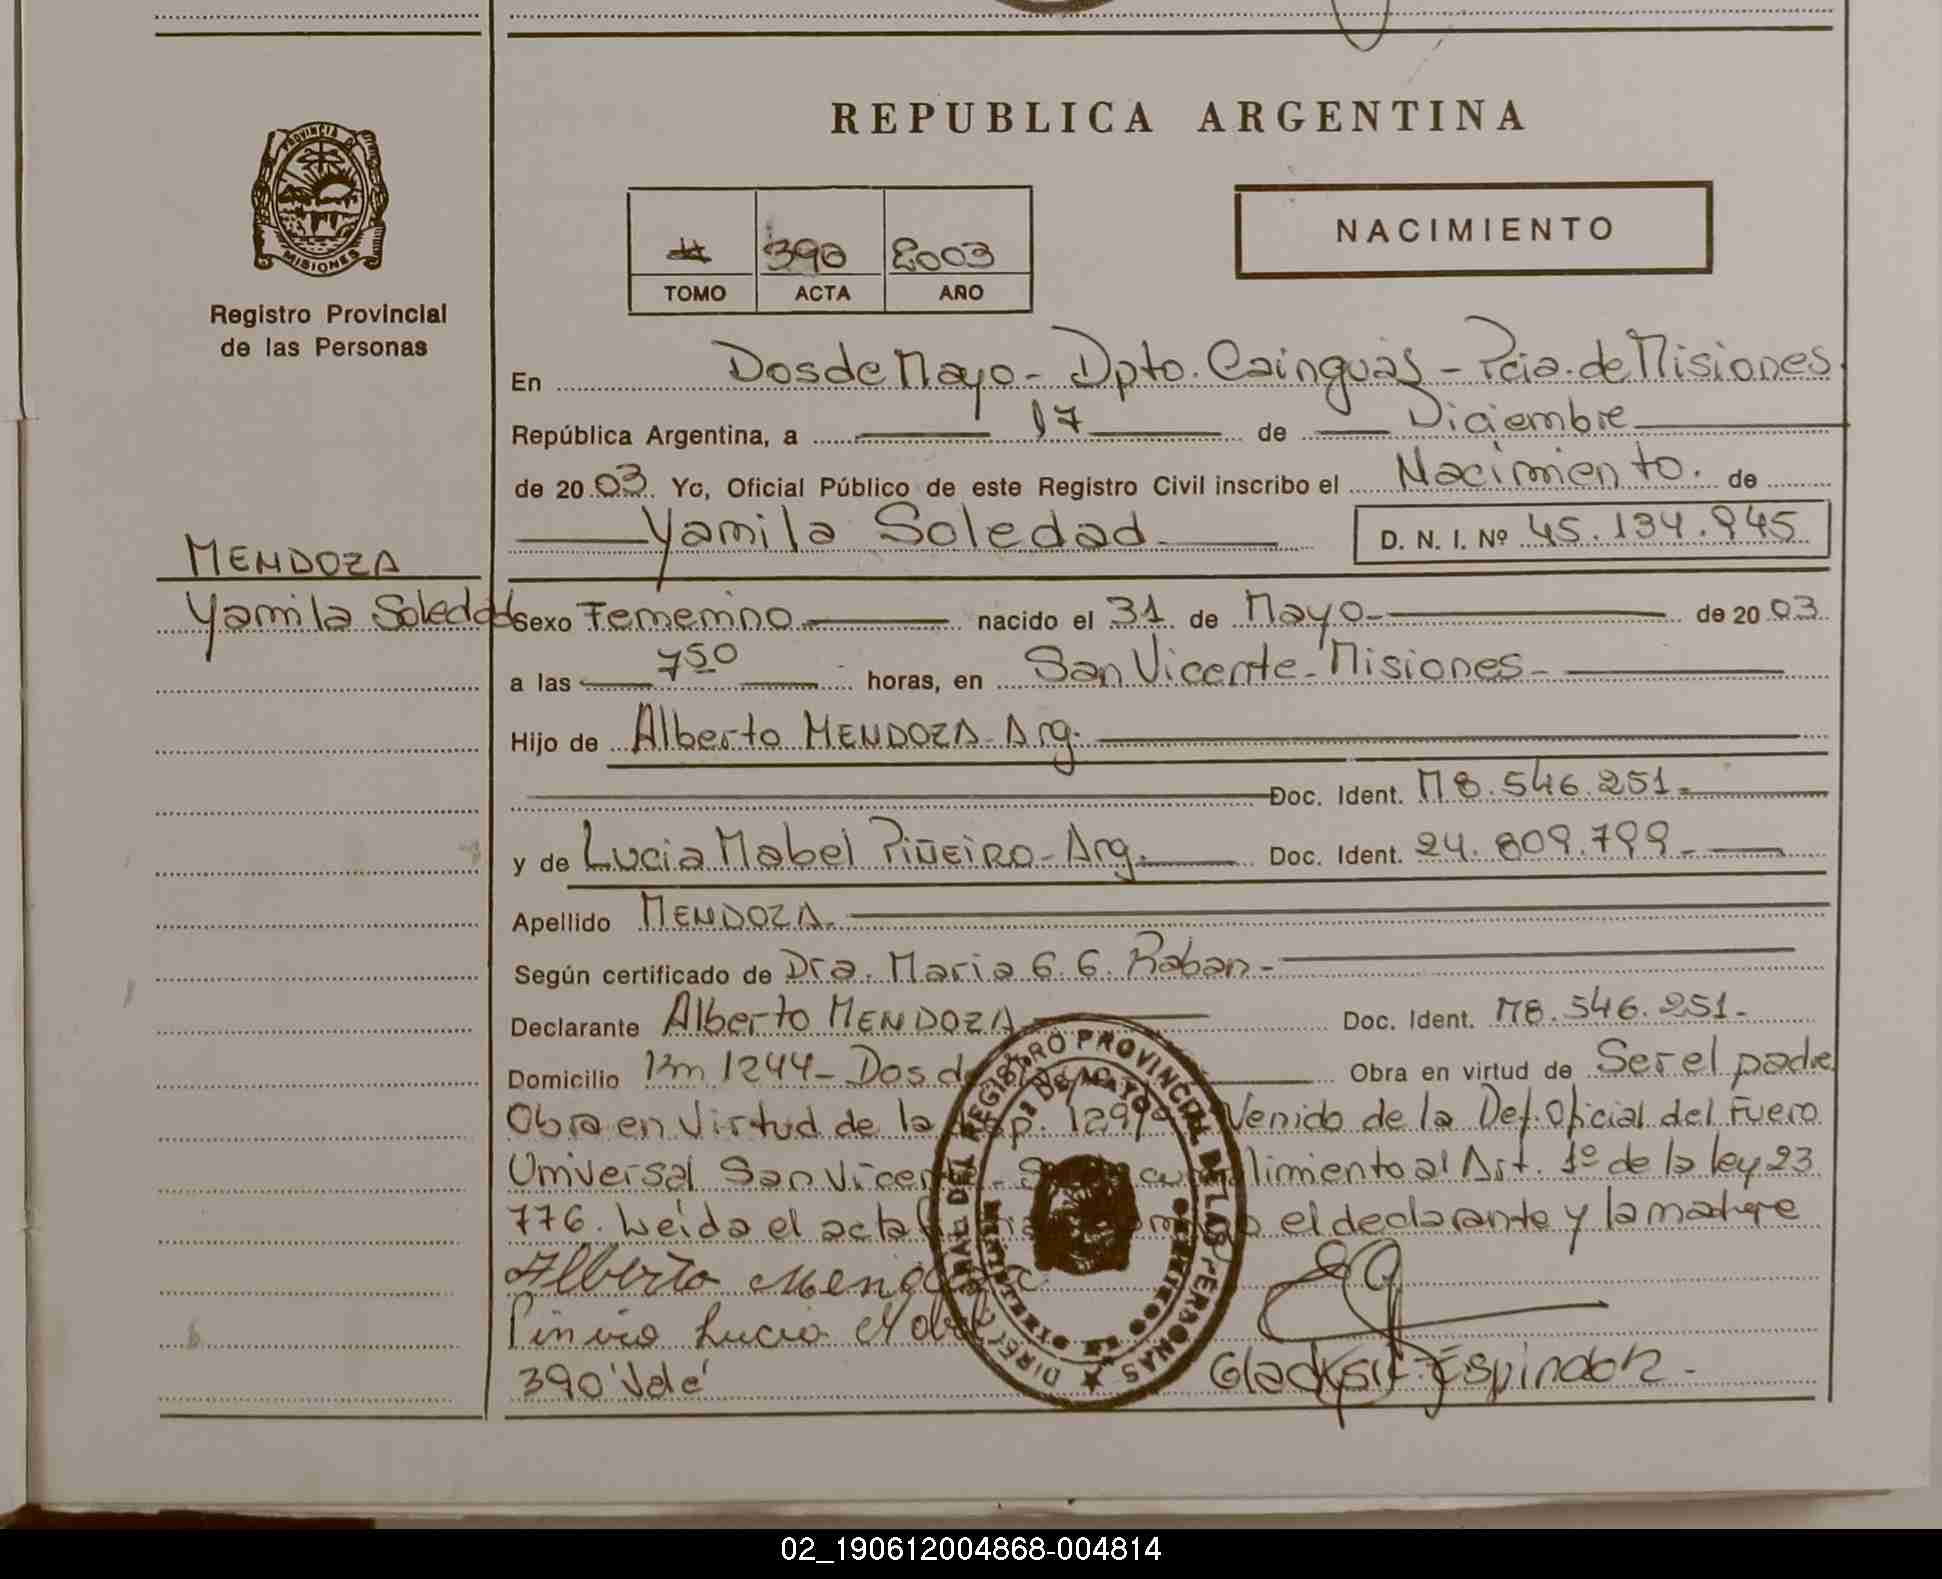 REPUBLICA ARGENTINA
PROVINCIA DE
MISIONES
Registro Provincial
de las Personas
390 2003
TOMO ACTA AÑO
NACIMIENTO
En Dos de Mayo - Dpto. Cainguás - Pcia. de Misiones
República Argentina, a 17 de Diciembre
de 2003. Yo, Oficial Público de este Registro Civil inscribo el Nacimiento. de
Yamila Soledad D. N. I. Nº 45.134.945
MENDOZA
Yamila Soledad
Sexo Femenino nacido el 31 de Mayo de 2003
a las 7 50 horas, en San Vicente - Misiones -
Hijo de Alberto MENDOZA Arg.
Doc. Ident. M8.546.251 -
y de Lucia Mabel PIÑEIRO - Arg. Doc. Ident. 24.809.799 -
Apellido MENDOZA
Según certificado de Dra. Maria G. G. Raban -
Declarante Alberto MENDOZA Doc. Ident. M8.546.251 -
Domicilio Km 1244 - Dos de Obra en virtud de Ser el padre
Obra en Virtud de la Exp. 129/ Venido de la Def. Oficial del Fuero
Universal San Vicente - cumplimiento al Art. 1º de la ley 23
776. Leída el acta el declarante y la madre
Alberto Mendoza
Lucia Mabel
390 'Vale'
Espindola -
DIRECCION GENERAL DEL REGISTRO PROVINCIAL DE LAS PERSONAS
DOS DE MAYO
02_190612004868-004814